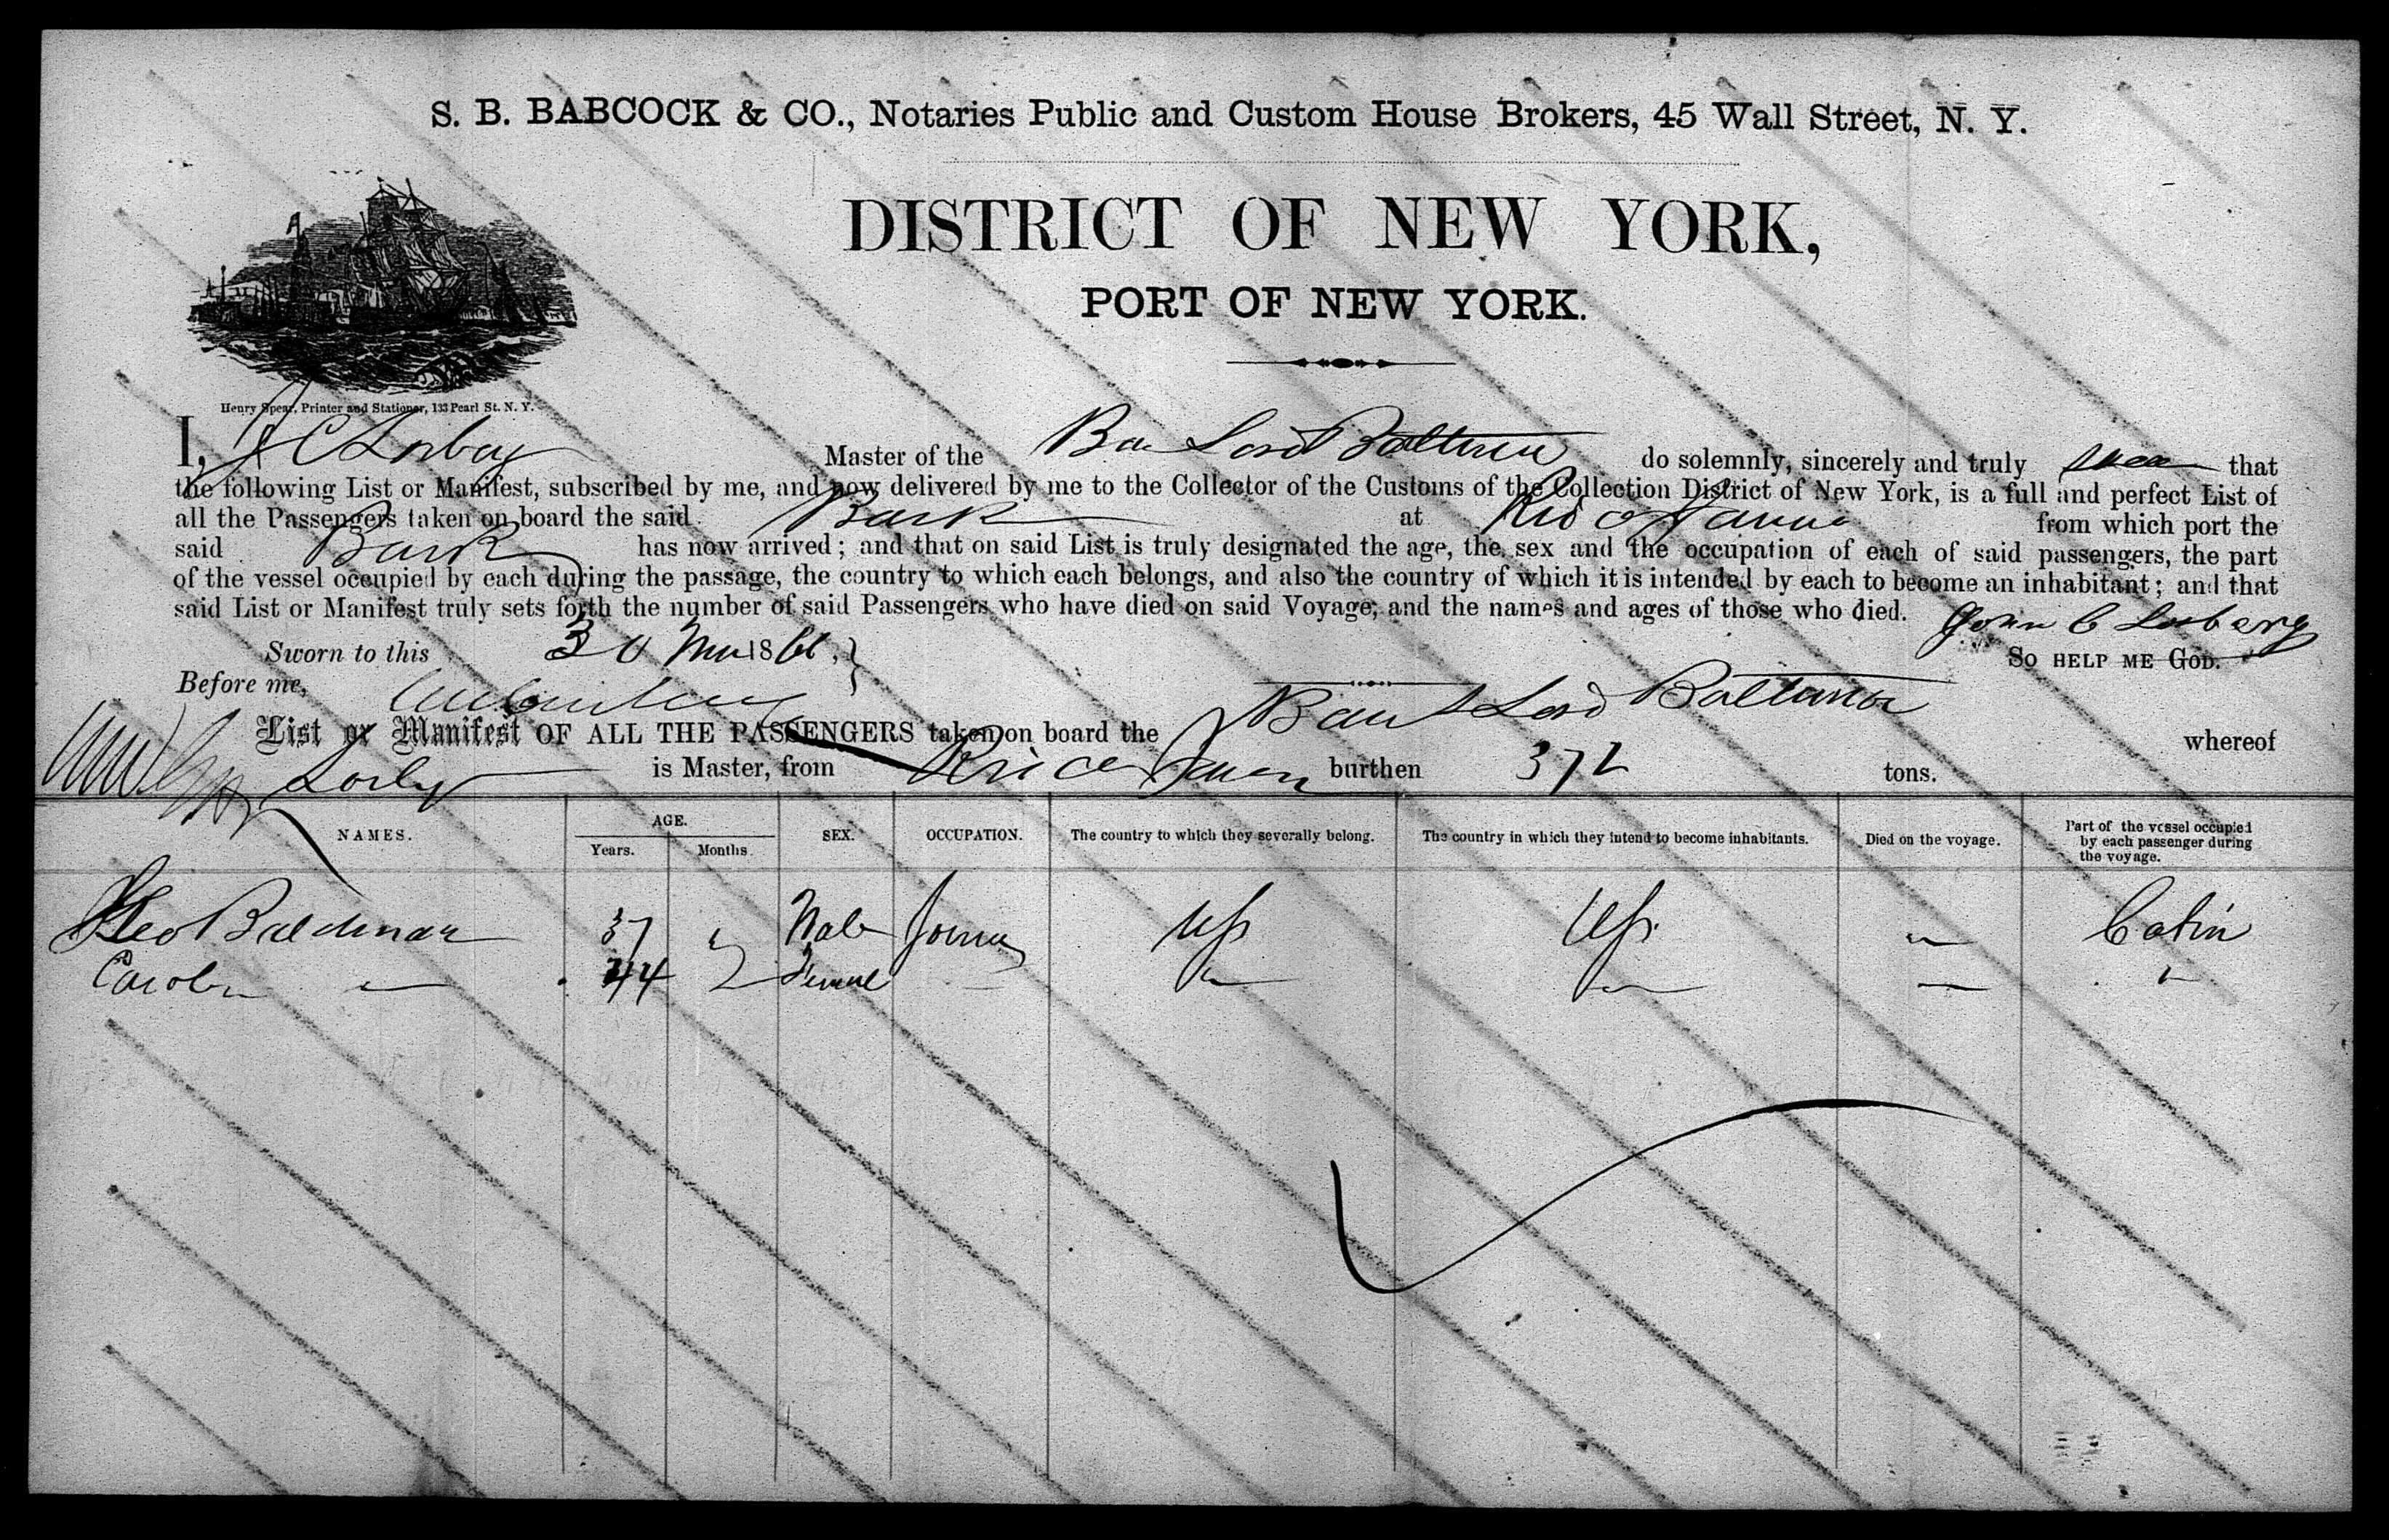 S. B. BABCOCK & CO., Notaries Public and Custom House Brokers, 45 Wall Street, N. Y.
DISTRICT OF NEW YORK,
PORT OF NEW YORK.
Henry Spear, Printer and Stationer, 133 Pearl St. N. Y.
I, J C Master of the Lord do solemnly, sincerely and truly that
the following List or Manifest, subscribed by me, and now delivered by me to the Collector of the Customs of the Collection District of New York, is a full and perfect List of
all the Passengers taken on board the said Bark at Rio from which port the
said Bark has now arrived; and that on said List is truly designated the age, the sex and the occupation of each of said passengers, the part
of the vessel occupied by each during the passage, the country to which each belongs, and also the country of which it is intended by each to become an inhabitant; and that
said List or Manifest truly sets forth the number of said Passengers who have died on said Voyage, and the names and ages of those who died. John C
Sworn to this 30 1866. SO HELP ME GOD.
Before me,
List or Manifest OF ALL THE PASSENGERS taken on board the Lord whereof
is Master, from burthen 372 tons.
NAMES. AGE. SEX. OCCUPATION. The country to which they severally belong. The country in which they intend to become inhabitants. Died on the voyage. Part of the vessel occupied by each passenger during the voyage.
Years. Months.
Geo 37 Male US US — Cabin
44 —